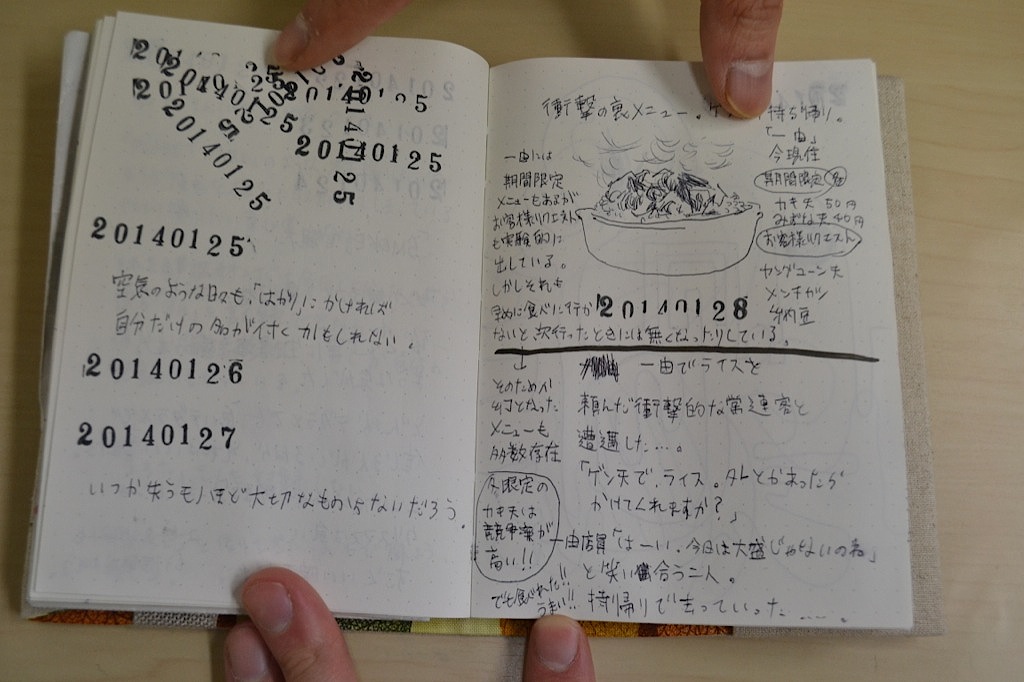 20140125
20140125
20140125
20140125
20140125
20140125
空気のような日々も、「はかり」にかければ
自分だけの名が付くかもしれない。
20140126
20140127
いつか失うモノほど大切なものはないだろう。
衝撃の裏メニュー。ゲ 持ち帰り。
「一由」
今現在
期間限定
カキ天 50円
みずな天 40円
お客様リクエスト
メンチカツ
納豆
一由には
期間限定
メニューもあるが
お客様リクエスト
も実験的に
出している。
しかしそれも
早めに食べに行か
ないと、次行ったときには無くなったりしている。
20140128
↓
そのためか
幻となった
メニューも
多数存在
冬限定の
カキ天は
競争率が
高い!!
でも食べれた!!
うまい!!
一由でライスを
頼んだ衝撃的な常連客と
遭遇した…。
「ゲソ天で、ライス。タレとかあったら
かけてくれますか?」
一由店員「はーい、今日は大盛じゃないのね」
と笑い合う二人。
持帰りで去っていった……。